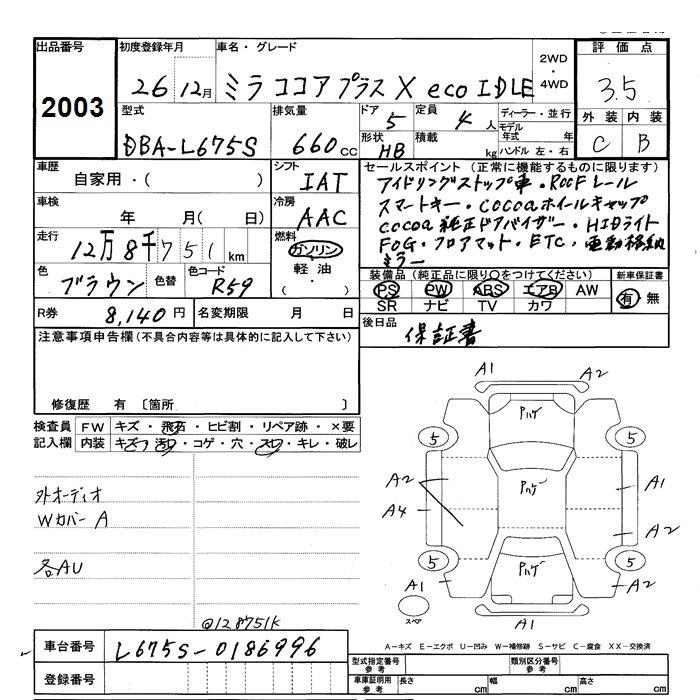 出品番号 初度登録年月 車名・グレード 評価点
2003 26 12月 ミラ ココア プラス X eco IDLE 2WD・4WD 3.5
型式 排気量 ドア 定員 ディーラー・並行 外装 内装
DBA-L675S 660cc 5 4人 モデル年式 年 C B
形状 積載 ハンドル 左・右
HB kg
車歴 シフト セールスポイント (正常に機能するものに限ります)
自家用・( ) IAT アイドリングストップ車・ROOFレール
車検 冷房 スマートキー・cocoaホイールキャップ
年 月( 日) AAC cocoa純正ドアバイザー・HIDライト
走行 燃料 FOG・フロアマット・ETC・電動格納
12万8千751km ガソリン ミラー
色 色替 色コード 軽油
ブラウン R59 ・( )
装備品 (純正品に限り○をつけてください) 新車保証書
PS PW ABS エアB AW 有・無
SR ナビ TV カワ
R券 8,140円 名変期限 月 日
後日品 保証書
注意事項申告欄 (不具合内容等は具体的に記入して下さい)
修復歴 有 〔箇所 〕
検査員 FW キズ・飛石・ヒビ割・リペア跡・×要
記入欄 内装 キズ・汚・コゲ・穴・スレ・キレ・破レ
A1 A2
Pハゲ
5 5
外オーディオ A2 Pハゲ A1
Wカバー A A4
A2
各AU 5 Pハゲ 5
A1 A2
スペア A1
@128751K
車台番号 L675S-0186996
A-キズ E-エクボ U-凹み W-補修跡 S-サビ C-腐食 XX-交換済
登録番号
型式指定番号 参考 類別区分番号 参考
車庫証明用 参考 長さ cm 幅 cm 高さ cm